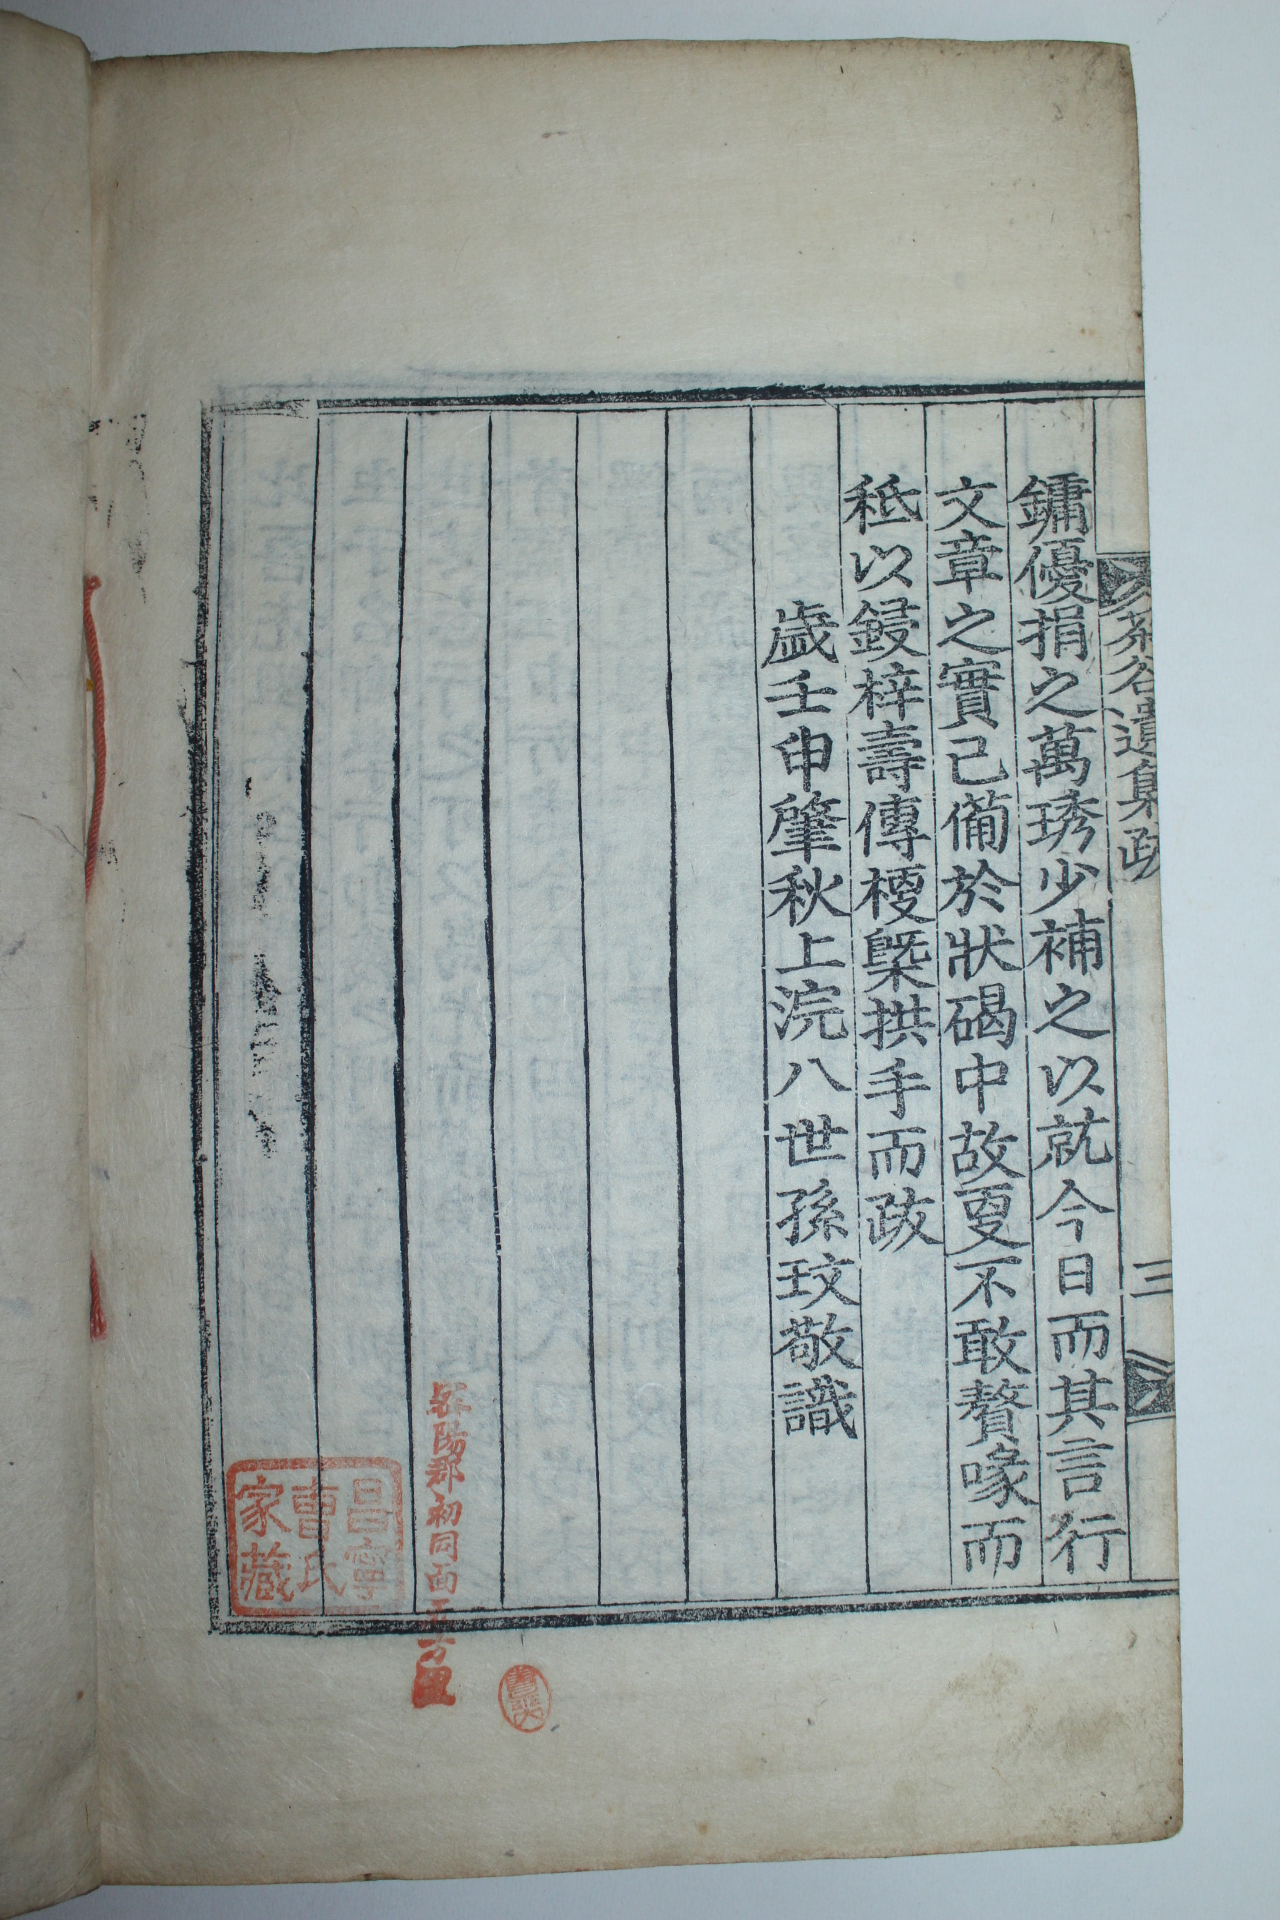 茶谷遺集跋
三
鏞優捐之萬琇少補之以就今日而其言行
文章之實已備於狀碣中故更不敢贅喙而
秪以鋟梓壽傳梗槩拱手而跋
歲壬申肇秋上浣八世孫玟敬識
昌寧
曺氏
家藏
陽郡初同面